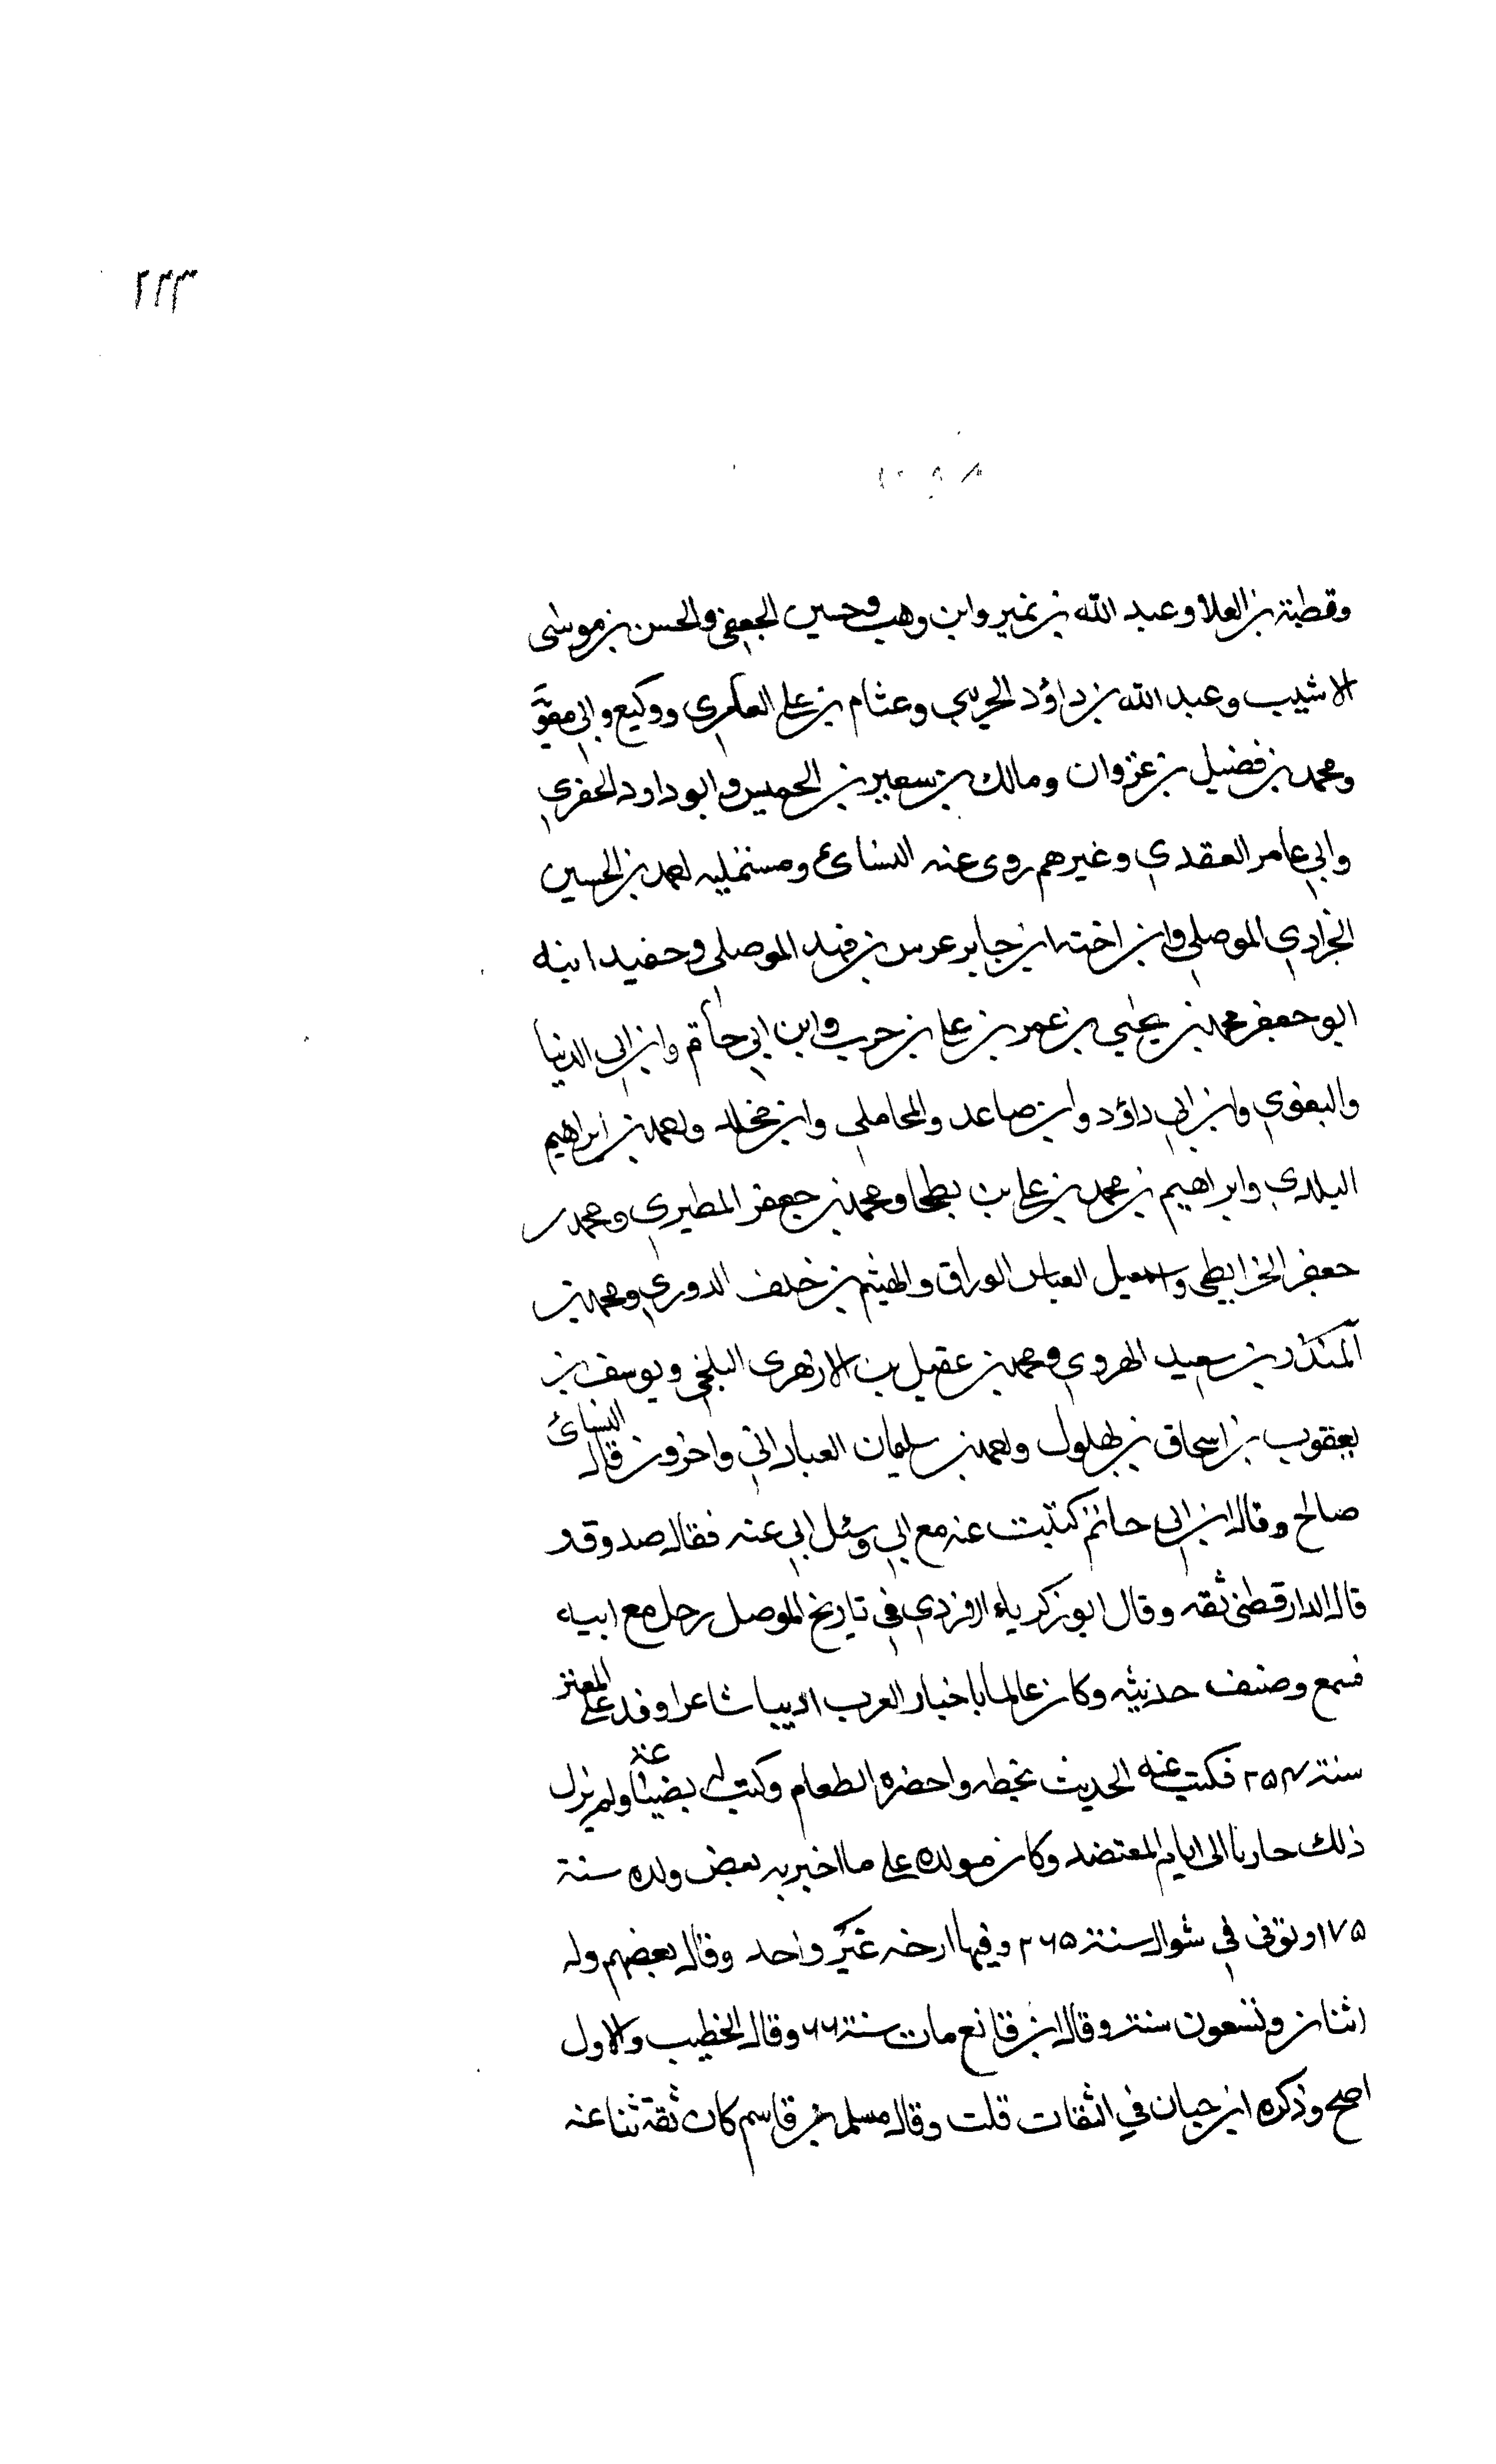 ٢٢٣
وقطبة بن العلا وعبد الله بن نمير وابن وهب وحسين الجعفي والحسن بن موسى
الاشيب وعبد الله بن داؤد الخريبي وعثام بن علي العامري ووكيع وابي معوية
ومحمد بن فضيل بن غزوان ومالك بن سعير بن الخميس وابو داود الحفري
وابي عامر العقدي وغيرهم روى عنه النسائي ومستمليه احمد بن الحسين
الجرادي الموصلي وابن اخته ابن جابر عرس بن فهد الموصلي وحفيد ابنه
ابو جعفر محمد بن يحيي بن عمر بن علي بن حرب وابن ابي حاتم وابن ابي الدنيا
والبغوي وابن ابي داؤد وابن صاعد والمحاملي وابن مخلد واحمد بن ابراهيم
البلدي وابراهيم بن محمد بن علي بن بطحا ومحمد بن جعفر المطيري ومحمد بن
جعفر الخرايطي واسمعيل العباس الوراق والهيثم بن خلف الدوري ومحمد بن
المنذر بن سعيد الهروي ومحمد بن عقيل بن الازهري البلخي ويوسف بن
يعقوب بن اسحاق بن بهلول واحمد بن سليمان العباداني واخرون قال النسائي
صالح وقال ابن ابي حاتم كتبت عنه مع ابي وسئل ابي عنه فقال صدوق و
قال الدارقطني ثقه وقال ابو زكرياء الازدي في تاريخ الموصل رحل مع ابيه
فسمع وصنف حديثه وكان عالما باخبار العرب اديبا شاعرا وفد على المعتز
سنة ٢٥٤ فكتب عنه الحديث بخطه واحضره الطعام وكتب له بضياع ولم يزل
ذلك جاريا الى ايام المعتضد وكان مولده على ما اخبر به بعض ولده سنة
١٧٥ وتوفى في شوال سنة ٢٦٥ وفيها ارخه غير واحد وقال بعضهم وله
اثنان وتسعون سنة وقال ابن قانع مات سنة ٦٦ وقال الخطيب والاول
اصح وذكره ابن حبان في الثقات قلت وقال مسلمة بن قاسم كان ثقة ثنا عنه